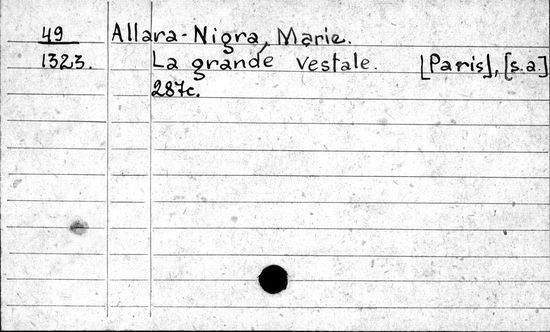 49 Allara-Nigra, Marie.
1323. La grande vestale. [Paris], [s.a.]
287c.